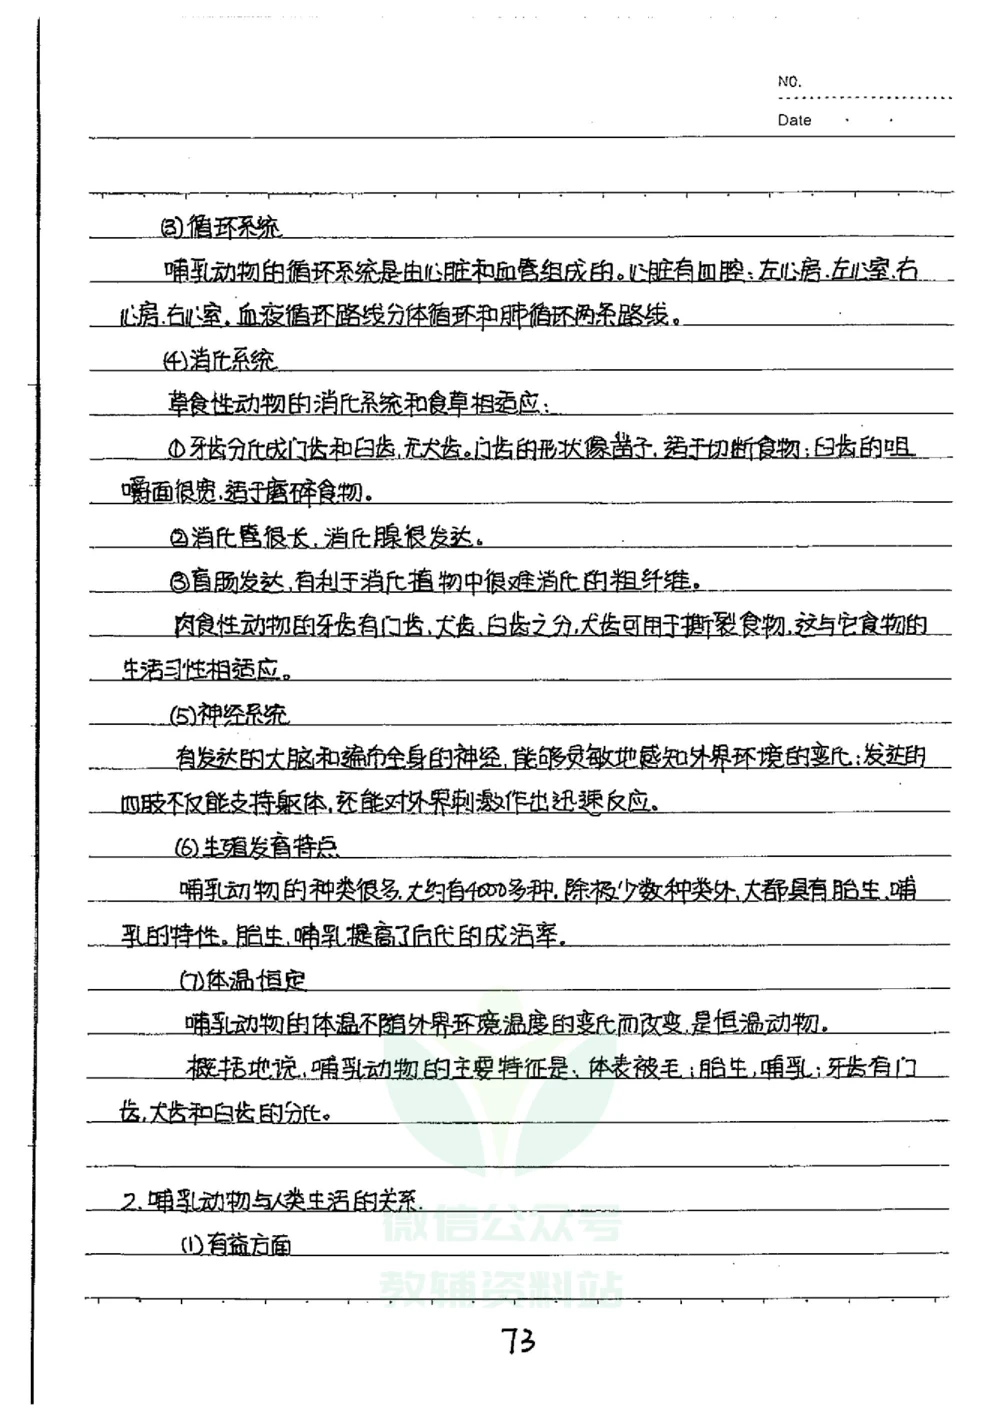 NO.
Date
(3)循环系统
哺乳动物的循环系统是由心脏和血管组成的。心脏有四腔:左心房.左心室.右
心房.右心室。血液循环路线分体循环和肺循环两条路线。
(4)消化系统
草食性动物的消化系统和食草相适应:
①牙齿分化成门齿和臼齿,无犬齿。门齿的形状像凿子,适于切断食物;臼齿的咀
嚼面很宽,适于磨碎食物。
②消化管很长,消化腺很发达。
③盲肠发达,有利于消化植物中很难消化的粗纤维。
肉食性动物的牙齿有门齿、犬齿、臼齿之分,犬齿可用于撕裂食物,这与它食物的
生活习性相适应。
(5)神经系统
有发达的大脑和遍布全身的神经,能够灵敏地感知外界环境的变化;发达的
四肢不仅能支持躯体,还能对外界刺激作出迅速反应。
(6)生殖发育特点
哺乳动物的种类很多,大约有4000多种,除极少数种类外,大都具有胎生、哺
乳的特性。胎生、哺乳提高了后代的成活率。
(7)体温恒定
哺乳动物的体温不随外界环境温度的变化而改变,是恒温动物。
概括地说,哺乳动物的主要特征是:体表被毛;胎生,哺乳;牙齿有门
齿,犬齿和臼齿的分化。
2.哺乳动物与人类生活的关系.
(1)有益方面
微信公众号
教辅资料站
73